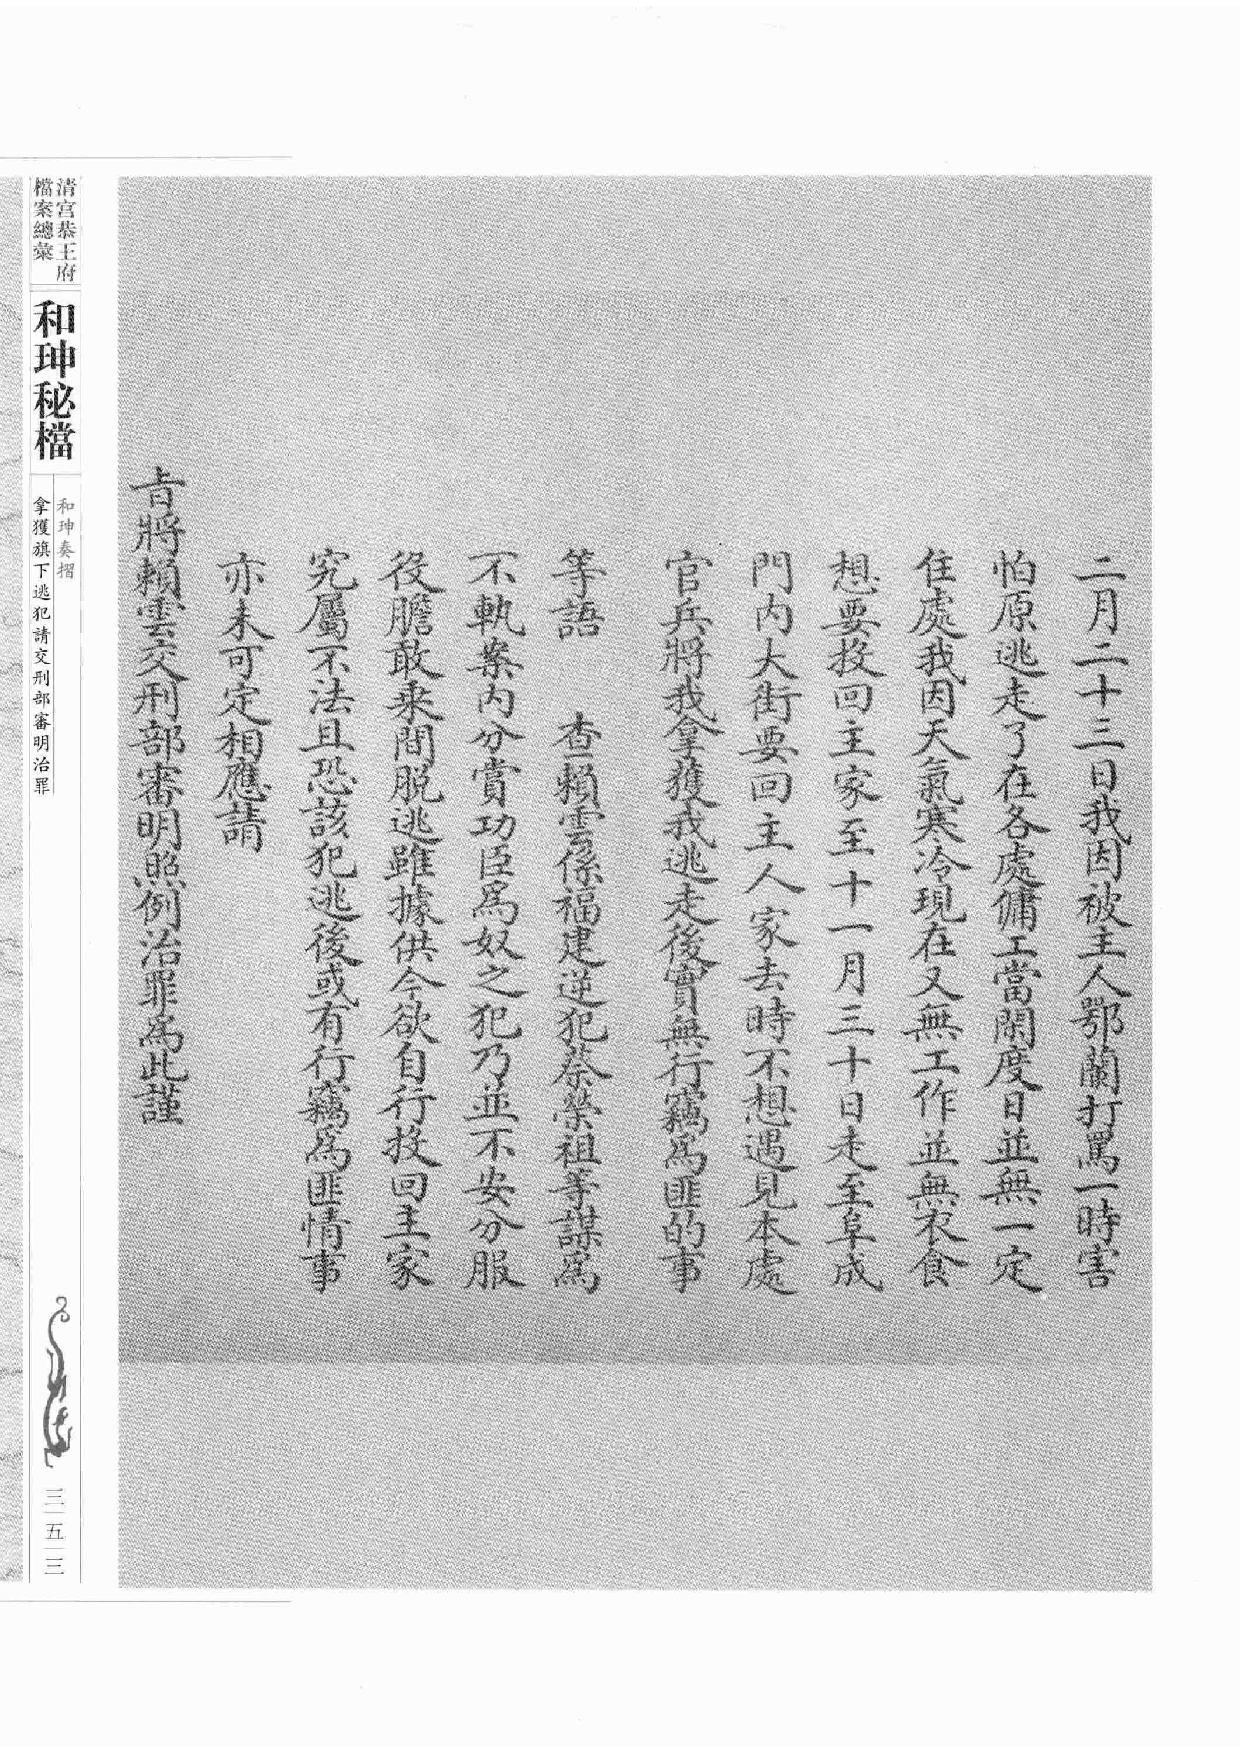 二月二十三日我因被主人鄂蘭打罵一時害
怕原逃走了在各處傭工當閑度日並無一定
住處我因天氣寒冷現在又無工作並無衣食
想要投回主家至十一月三十日走至阜成
門内大街要回主人家去時不想遇見本處
官兵將我拿獲我逃走後實無行竊為匪的事
等語 查賴雲係福建逆犯蔡榮祖等謀為
不軌案内分賞功臣為奴之犯乃並不安分服
役膽敢乘間脱逃雖據供今欲自行投回主家
究屬不法且恐該犯逃後或有行竊為匪情事
亦未可定相應請
旨將賴雲交刑部審明照例治罪為此謹
清宮恭王府
檔案總彙
和珅秘檔
和珅奏摺
拿獲旗下逃犯請交刑部審明治罪
三五三